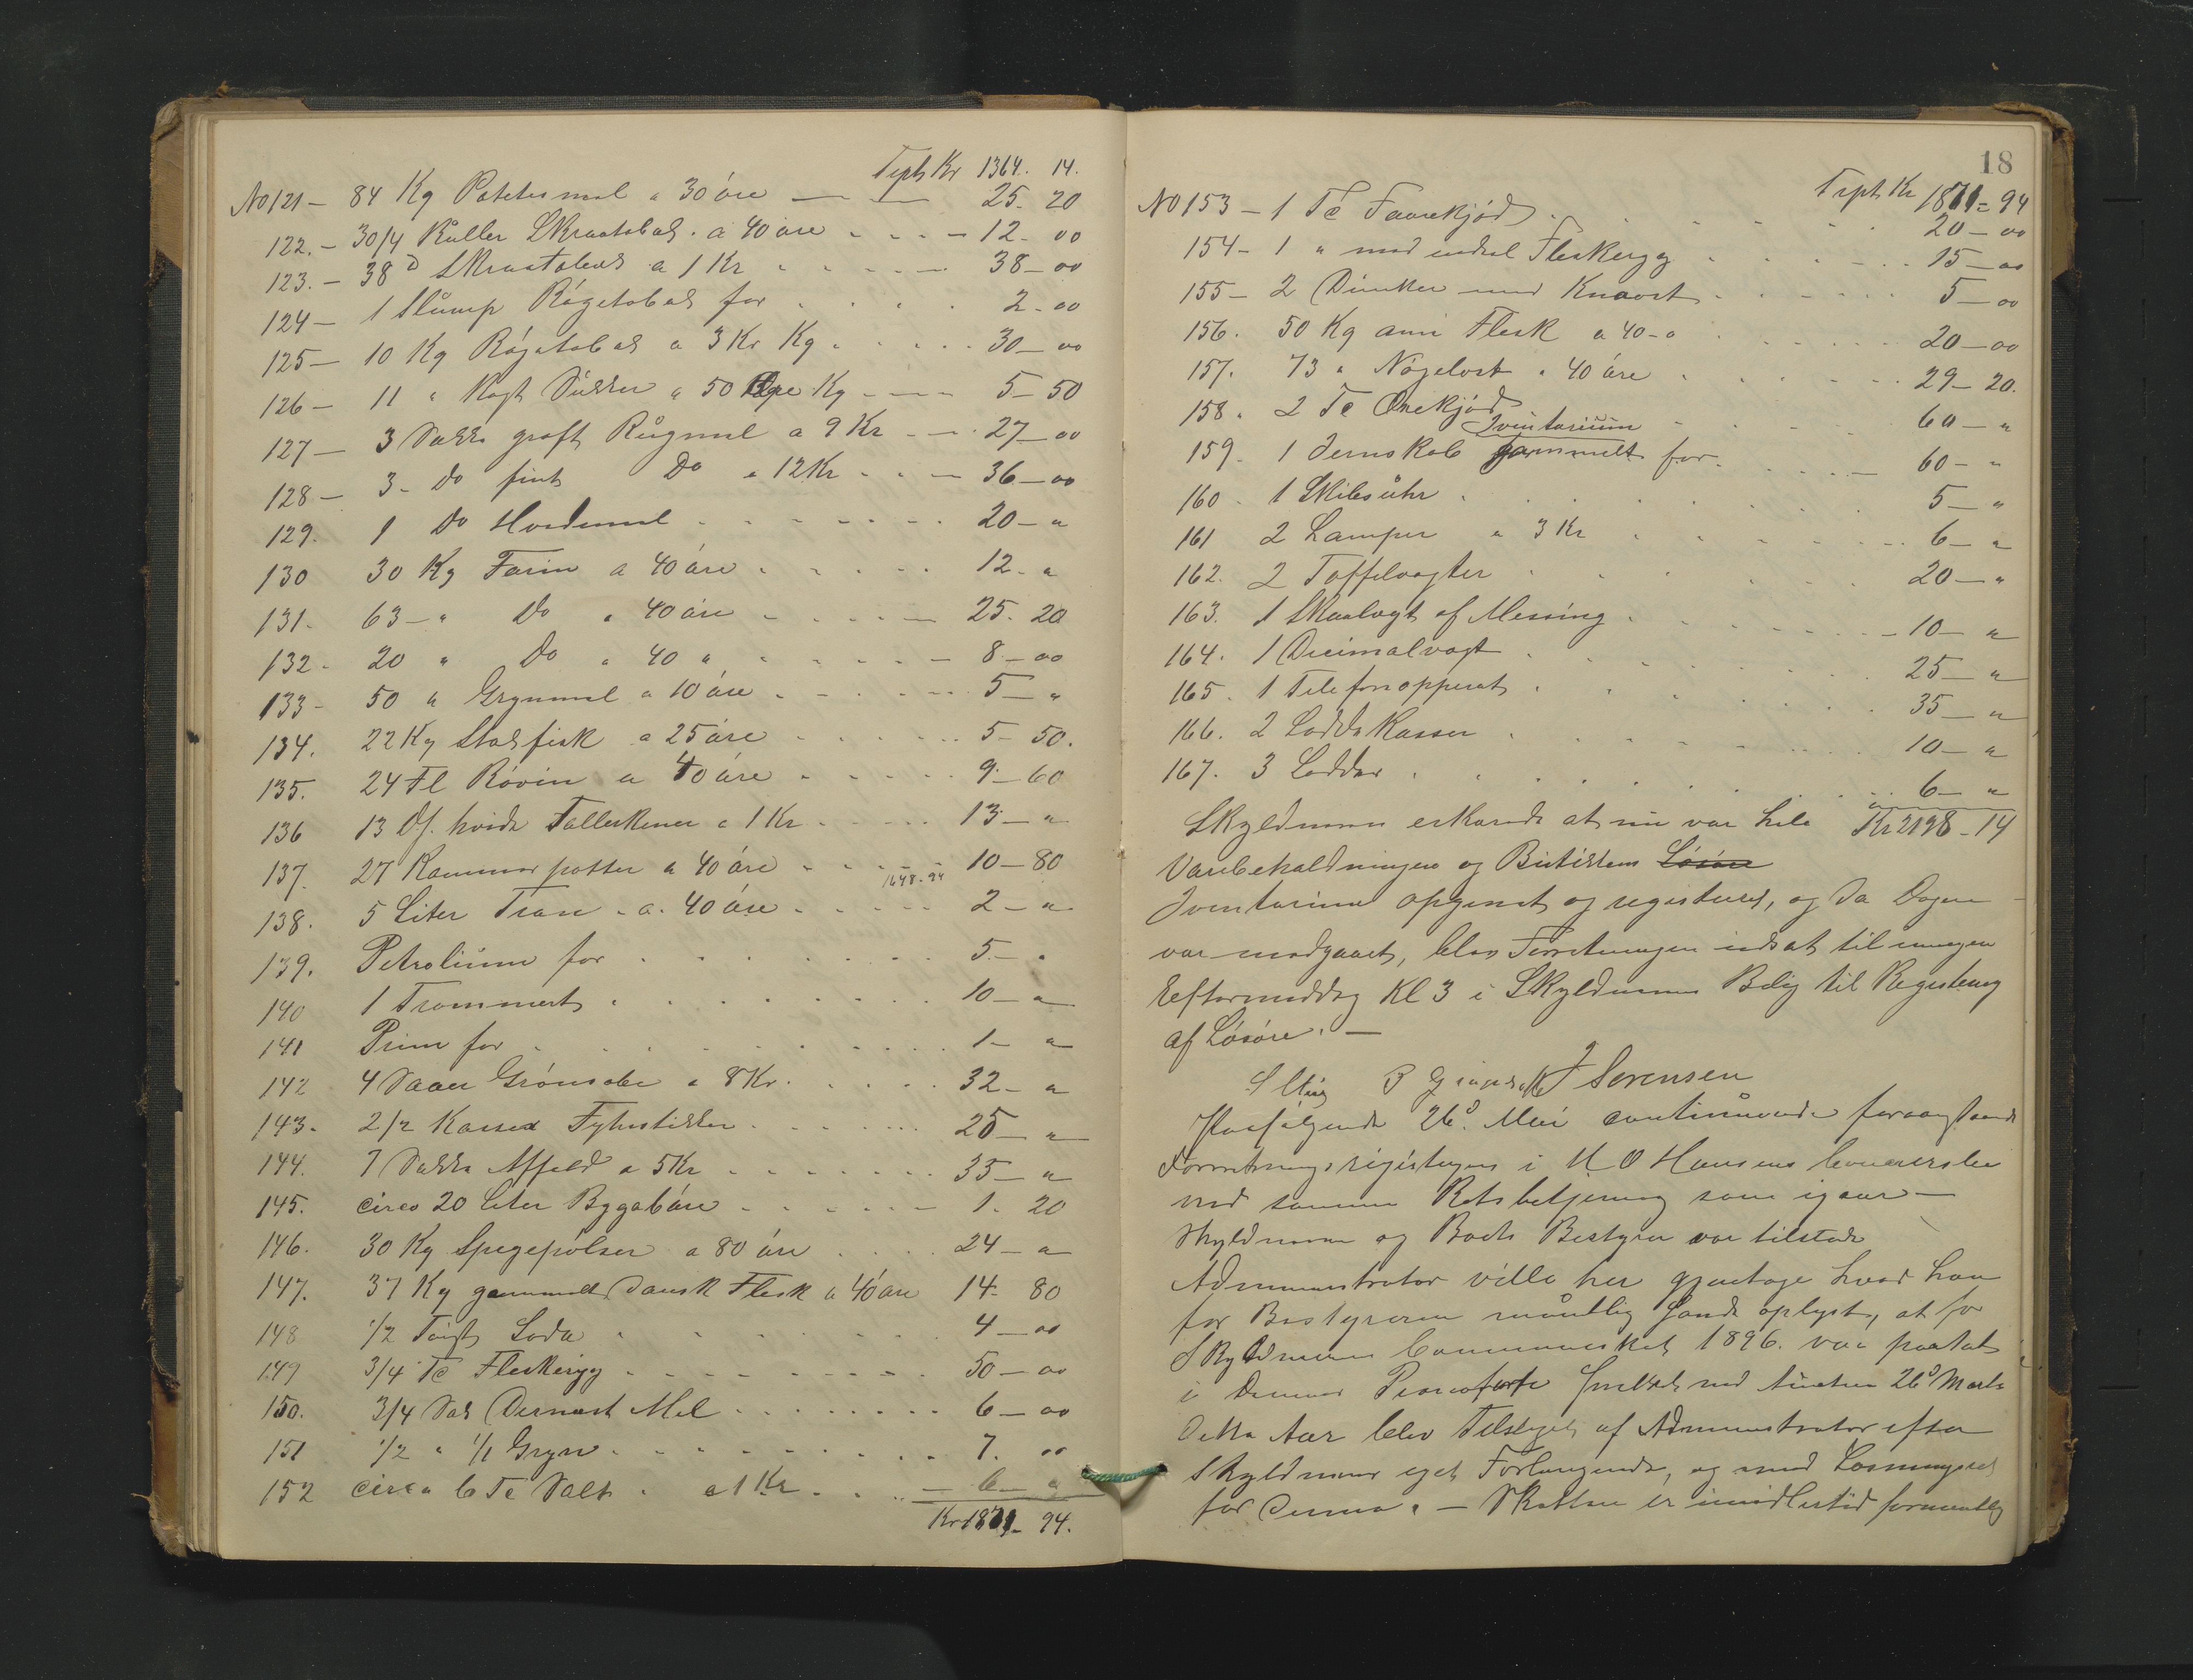 Trpt Kr 1364. 14.
No 121 – 84 Kg Potetesmel a 30 öre — — 25. 20
122. – 30/4 Ruller Skraatobak. a 40 öre - - - 12 - 00
123. – 38 d Skraatobak a 1 Kr - - - - 38 - 00
124 – 1 Slump Røgetobak for . . . . 2 - 00
125 – 10 Kg Røgetobak a 3 Kr Kg . . . . 30 - 00
126 – 11 " Kagt Sukker a 50 Øre Kg - - - 5 - 50
127 – 3 Sækk groft Rugmel a 9 Kr - - . 27 - 00
128 – 3 - do fint Do a 12 Kr . . - 36 - 00
129. 1 Do Hvedemel - - - - - - . 20 - "
130 30 Kg Farin a 40 öre . . . . . 12 - "
131. 63 - " Do " 40 öre - - - - 25. 20
132 - 20 " Do " 40 " - - - - 8 - 00
133 - 50 " Grynmel a 10 öre . - - - - 5 - "
134. 22 Kg Stokfisk a 25 öre - - - - - 5 - 50.
135. 24 Fl Rövin a 40 öre - - - - - 9 - 60
136 13 Df. hvide Tallerkener a 1 Kr - - - - 13 - "
137. 27 Kammerpotter a 40 öre - - - - - 10 - 80
1648-94
138. 5 Liter Tran - a. 40 öre - - - - - 2 - "
139. Petrolium for . . . . . . . 5 - "
140 1 Trommert . . . . . . . 10 - "
141 Prim for . . . . . . . . 1 - "
142 4 Daaer Grønsabe a 8 Kr. . . . . 32 - "
143. 2/2 Kasser Fyrstikker . . . . . . 25 - "
144. 7 Sækk Affald a 5 Kr . . . . . . 35 - "
145. circa 20 Liter - - - - - - 1. 20
146. 30 Kg Spegepølser a 80 öre . . . 24 - "
147. 37 Kg gammelt Dansk Flesk a 40 öre 14 - 80
148 1/2 Soda . . . . . . . . 4 - 00
149 3/4 Te Fleskerygg . . . . . . . 50 - 00
150. 3/4 Sæk Mel . . . . . . . . 6 - 00
151 1/2 " 1/1 Gryn . . . . . . . . 7. 00
152 circa 6 Te Salt . a 1 Kr . . . - 6 - "
Kr 1871 - 94.
18
Trpt Kr 1871 = 94
No 153 – 1 Te Faarekjød . . . . . . 20 - 00
154 – 1 " med endel Fleskerygg . . . . . . 15 - 00
155 – 2 Dunker med Knaost . . . . . . 5 - 00
156. 50 Kg am. Flesk a 40 - ø . . . . . 20 - 00
157. 73 " Nøgelost " 40 öre . . . . . 29 - 20.
158. 2 Te Oxekjød . . . . . 60 - "
Inventarium
159. 1 Jernskab gammelt for . . . . . 60 - "
160. 1 Skibsuhr . . . . . . . 5 - "
161 2 Lamper a 3 Kr . . . . . . 6 - "
162. 2 Taffelvægter . . . . . . 20 - "
163. 1 Skaalvægt af Messing . . . . . . - 10 - "
164. 1 Decimalvægt . . . . . . 25 - "
165. 1 Telefonapperat . . . . . . 35 - "
166. 2 Ladds Kasser . . . . . . 10 - "
167. 3 Ladder . . . . . . . 6 - "
Skyldneren erkærede at nu var hele Kr 2198 - 14
Varebeholdningen og Butikkens Løsøre
Inventarium opgivet og registeret, og da Dagen
var medgaaet, blev Forretningen udsat til imorgen
Eeftermiddag Kl 3 i Skyldnerens Bolig til Registering
af Løsøre. —
J Sørensen
Paafølgende 26d. Mai continuerede foranstaaende
Forretnings registeren i M. O Hansens
ved samme Retsbetjening som igaar —
Skyldneren og Boets Bestyrer var tilstede
Administrator ville her gjentage hvad han
for Bestyreren mundtlig havde oplyst, at for
Skyldnerens Communeskat 1896. var paatat
i Dennes Pianoforte hvilket ved Auction 26d Marts
dette Aar blev Tilslaget af Administrator efter
Skyldnerens eget Forlangende, og med Løsningsret
for Denne. — Skatten er imidlertid formentlig